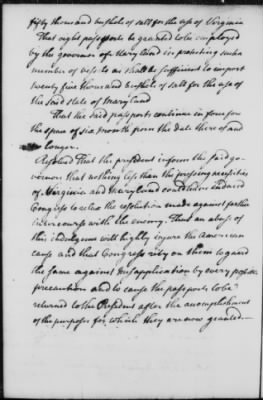 fifty thousand bushels of salt for the use of Virginia
That eight passports be granted to be employed
by the governor of Maryland in protecting such a
number of vessels as shall be sufficient to import
twenty five thousand bushels of salt for the use of
the said state of Maryland
That the said passports continue in force for
the space of six month from the date thereof and
no longer.
Resolved That the president inform the said go-
vernors that nothing less than the pressing necessities
of Virginia and Maryland could have induced
Congress to relax the resolution made against farther
intercourse with the enemy. That an abuse of
this indulgence will highly injure the American
cause and that Congress rely on them to guard
the same against misapplication by every possible
precaution and to cause the passports to be
returned to the President after the accomplishment
of the purposes for which they are now granted.—